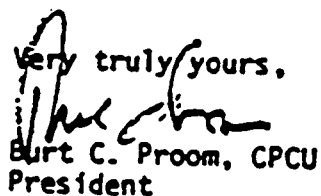 Very truly yours,
Burt C. Proom, CPCU
President